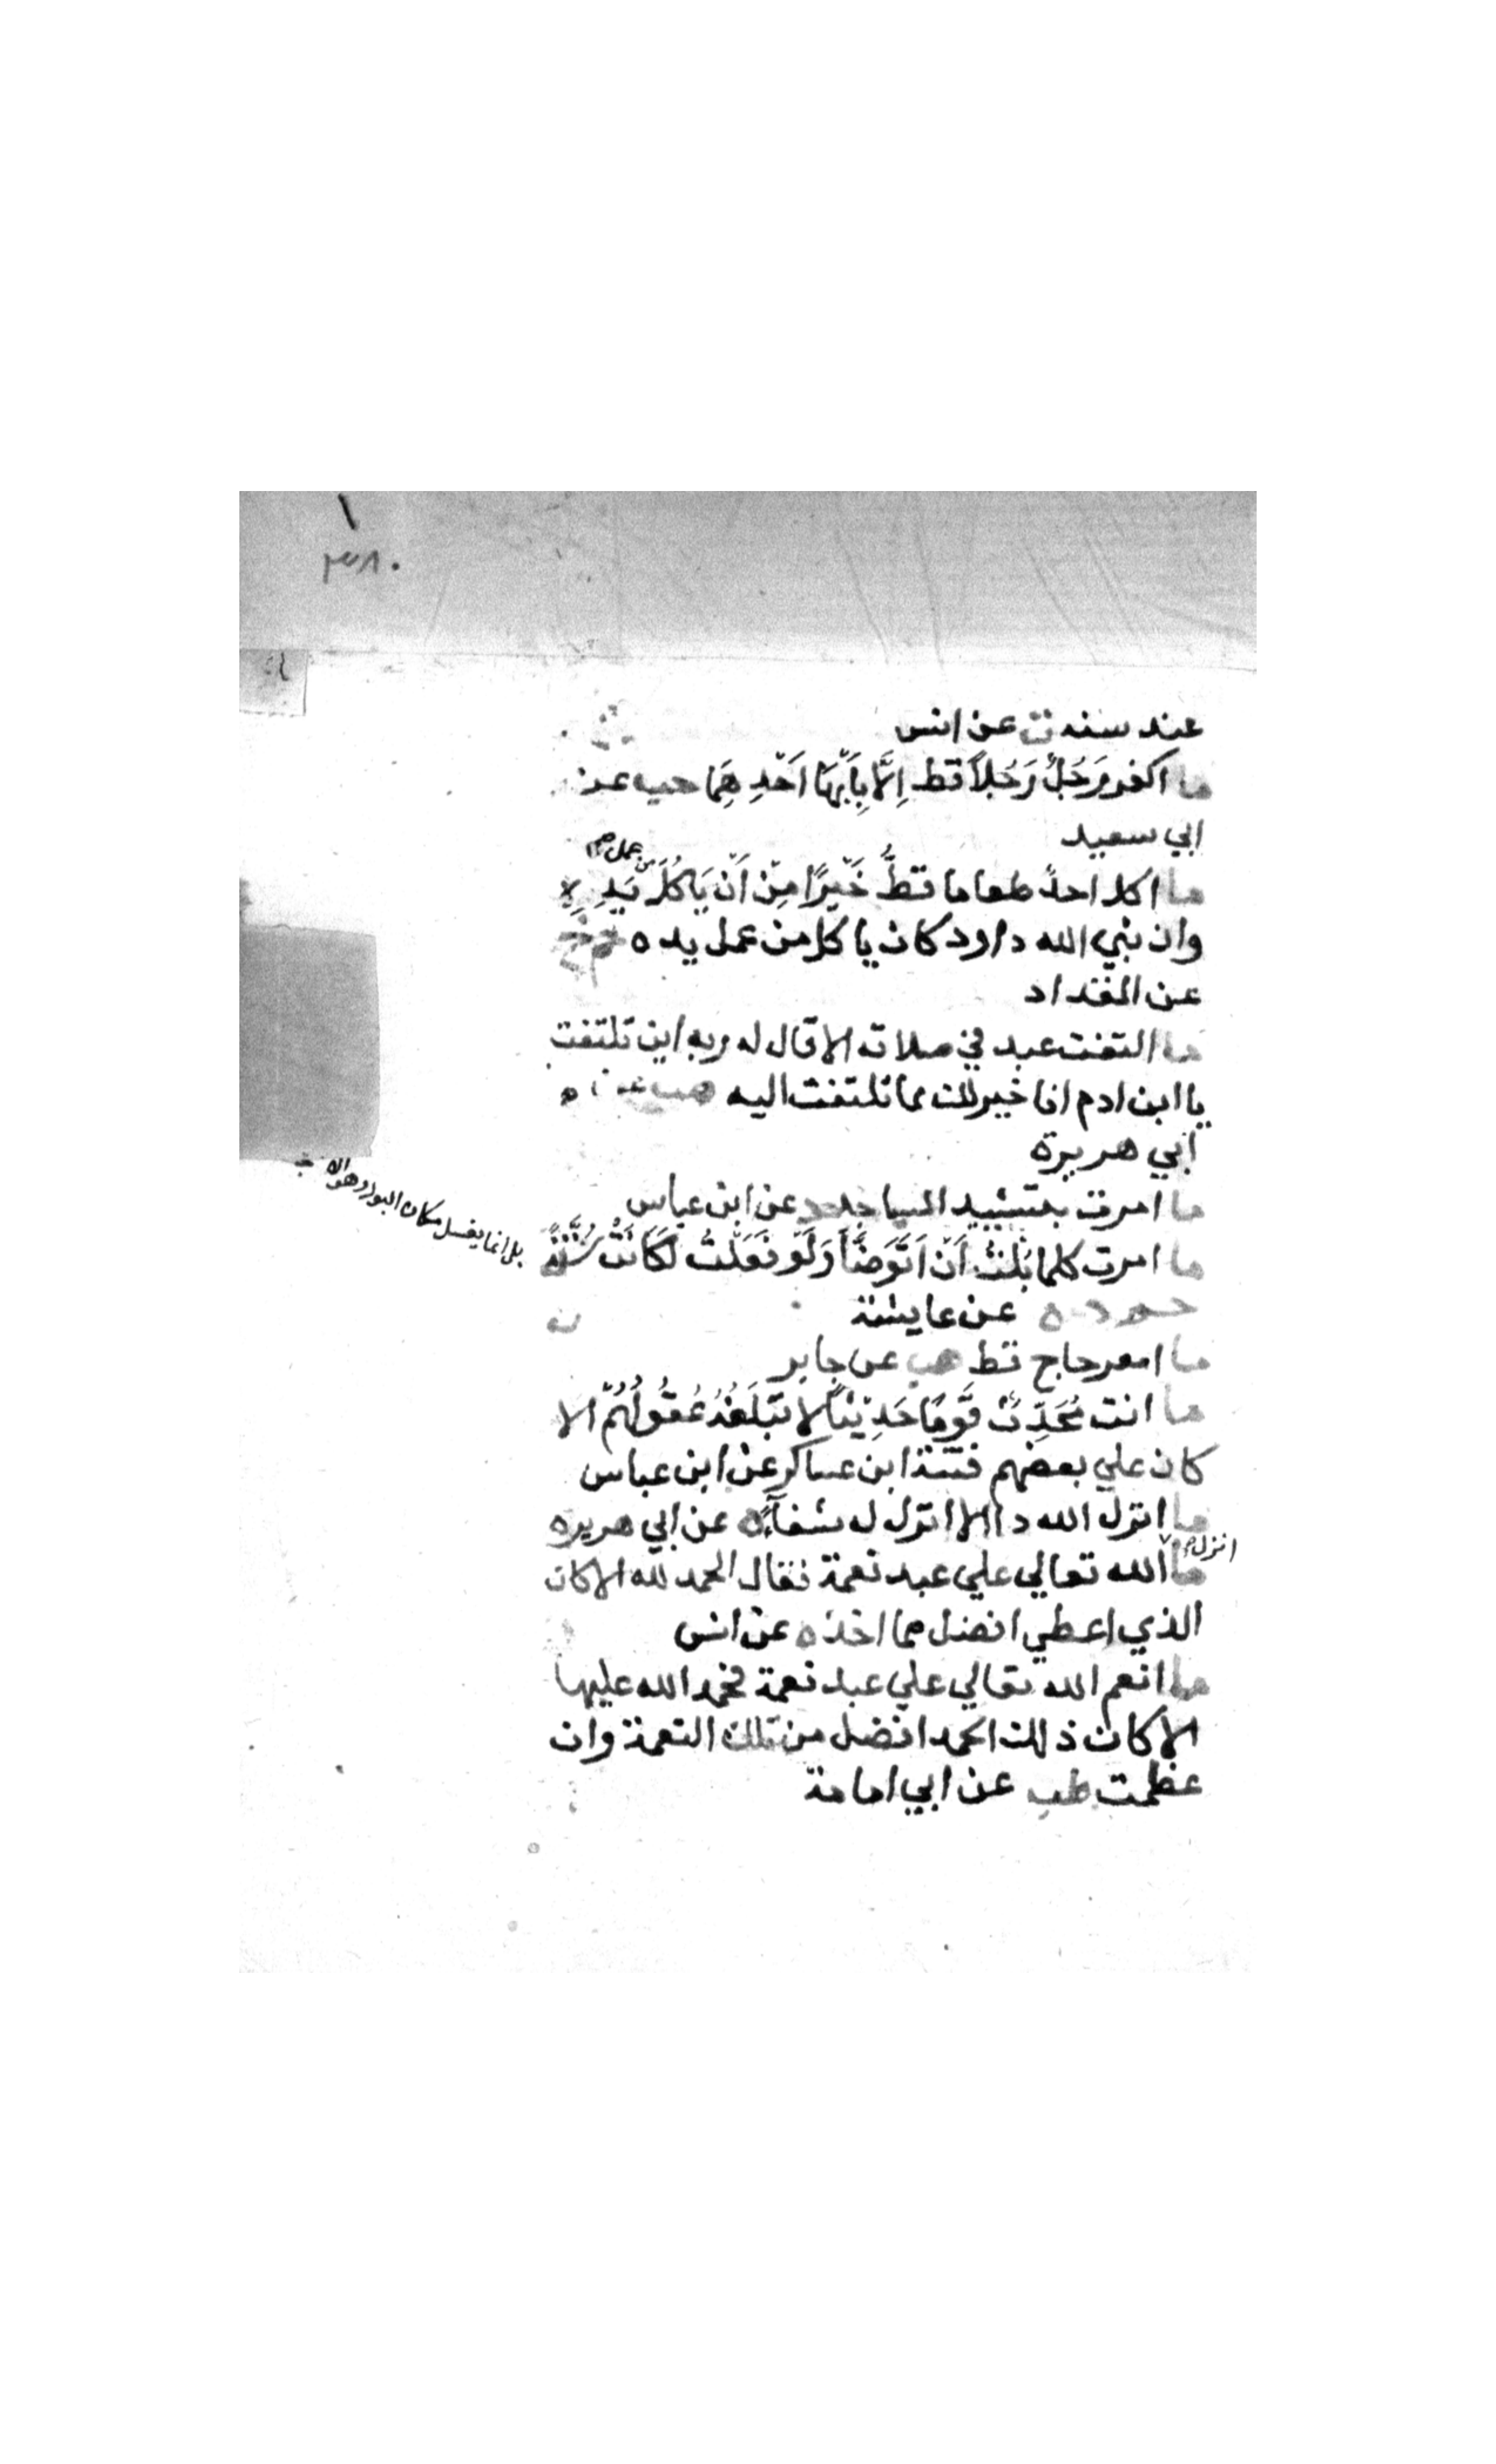 ٣٨٠
عند سنه ت عن انس
ما اكفر رَجُلٌ رَجُلاً قط اِلَّا بَاَبِهَا اَحَدِهِمَا حب عن
ابي سعيد
ما اكل احدٌ طعاما قطُّ خَيْرًا مِنْ اَنْ يَاكُلَ مِنْ عمل يَدِهِ
وان نبي الله داود كان ياكل من عمل يده حم خ
عن المقداد
ما التفت عبد في صلاته الا قال له ربه اين تلتفت
يا ابن ادم انا خير لك مما تلتفت اليه هب عن
ابي هريرة
ما امرت بتشييد المساجد د عن ابن عباس
ما امرت كلما بُلْتُ اَنْ اَتَوَضَّأَ وَلَوْ فَعَلْتُ لَكَانَتْ سُنَّةً
حم د ه عن عايشة
ما امعر حاج قط هب عن جابر
ما انت مُحَدِّثٌ قَوْمًا حَدِيْثاً لا تَبْلُغُهُ عُقُولُهُمْ الا
كان علي بعضهم فتنة ابن عساكر عن ابن عباس
ما انزل الله دا الا انزل له شفآءً ه عن ابي هريره
ما انزل الله تعالي علي عبد نعمة فقال الحمد لله الا كان
الذي اعطي افضل مما اخذ ه عن انس
ما انعم الله تعالي علي عبد نعمة فحمد الله عليها
الا كان ذلك الحمد افضل من تلك النعمة وان
عظمت طب عن ابي امامة
بل انما يغسل مكان البول وهو